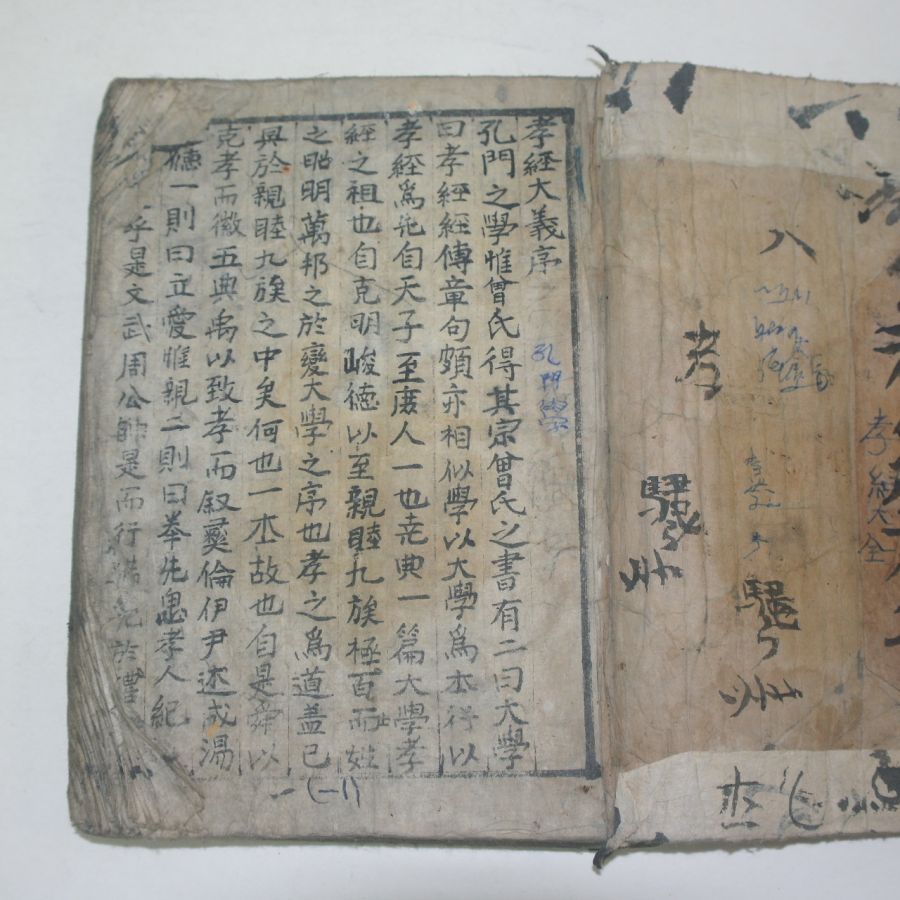 孝經大全
八
孝
孔門學
孝經大義序
孔門之學惟曾氏得其宗曾氏之書有二曰大學
曰孝經經傳章句頗亦相似學以大學爲本行以
孝經爲先自天子至庶人一也堯典一篇大學孝
經之祖也自克明峻德以至親睦九族極百而姓
之昭明萬邦之於變大學之序也孝之爲道蓋已
具於親睦九族之中矣何也一本故也自是舜以
克孝而徽五典禹以致孝而叙彛倫伊尹述成湯
德一則曰立愛惟親二則曰奉先思孝人紀
乎是文武周公帥是而行於禮